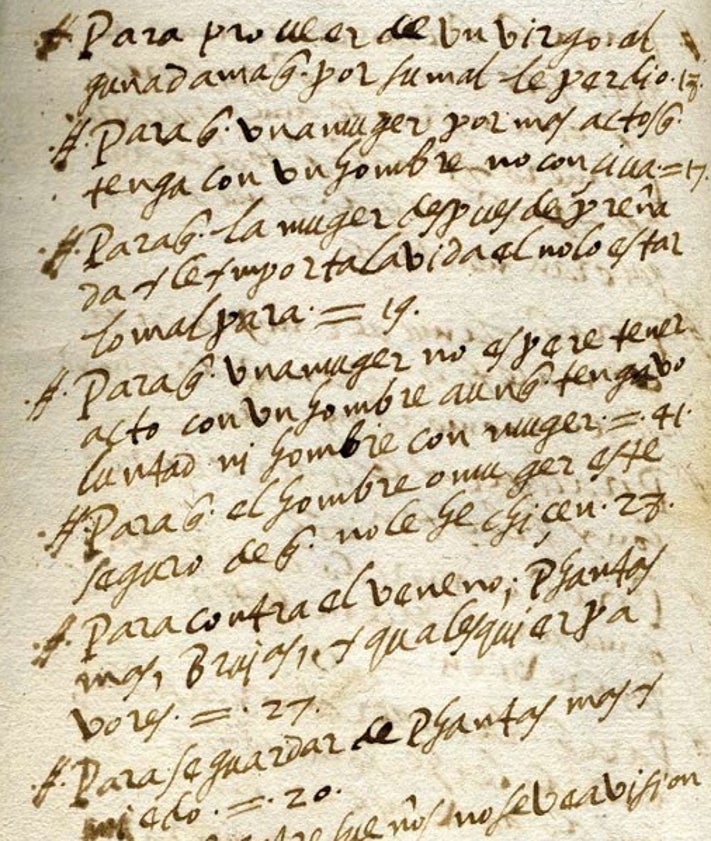 # Para proueer de un virgo. al
guna dama q̃. por su mal le perdio. 13.
# Para q̃. una muger por mas actos q̃.
tenga con un hombre no conciua. = 17.
# Para q̃. la muger despues de preña
da y le ymporta la vida el no lo estar
lo mal para. = 19.
# Para q̃. una muger no espere tener
acto con un hombre aunq̃. tenga vo
luntad ni hombre con muger. = 41.
# Para q̃. el hombre o muger este
seguro de q̃. no le hechiçen. 27.
# Para contra el veneno; Phantas
mas, Brujas, y qualesquier pa
vores. = . 27.
# Para se guardar de Phantasmas y
miedo. = . 20.
entre sueños no se vea vision